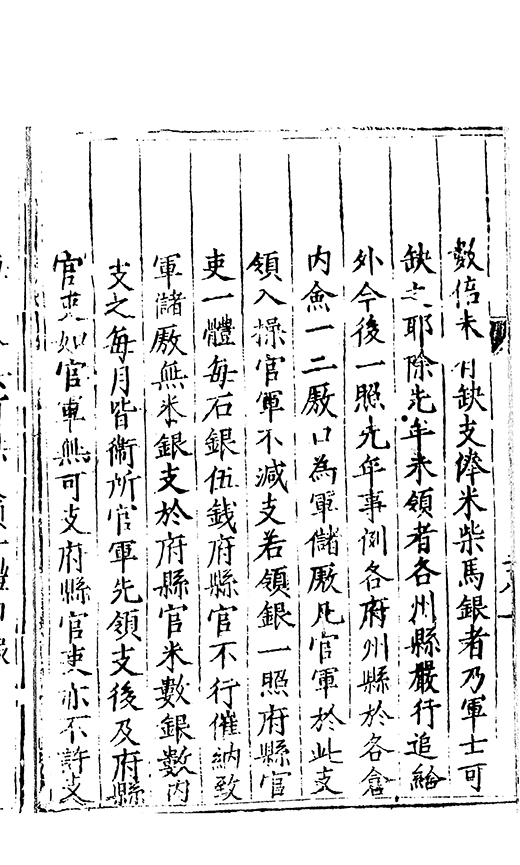 數倍未有缺支俸米柴馬銀者乃軍士可
缺之耶除先年未領者各州縣嚴行追給
外今後一照先年事例各府州縣於各倉
內僉一二厫口為軍儲厫凡官軍於此支
領入操官軍不減支若領銀一照府縣官
吏一體每石銀伍錢府縣官不行催納致
軍儲厫無米銀支於府縣官米數銀數內
支之每月皆衛所官軍先領支後及府縣
官吏如官軍無可支府縣官吏亦不許支